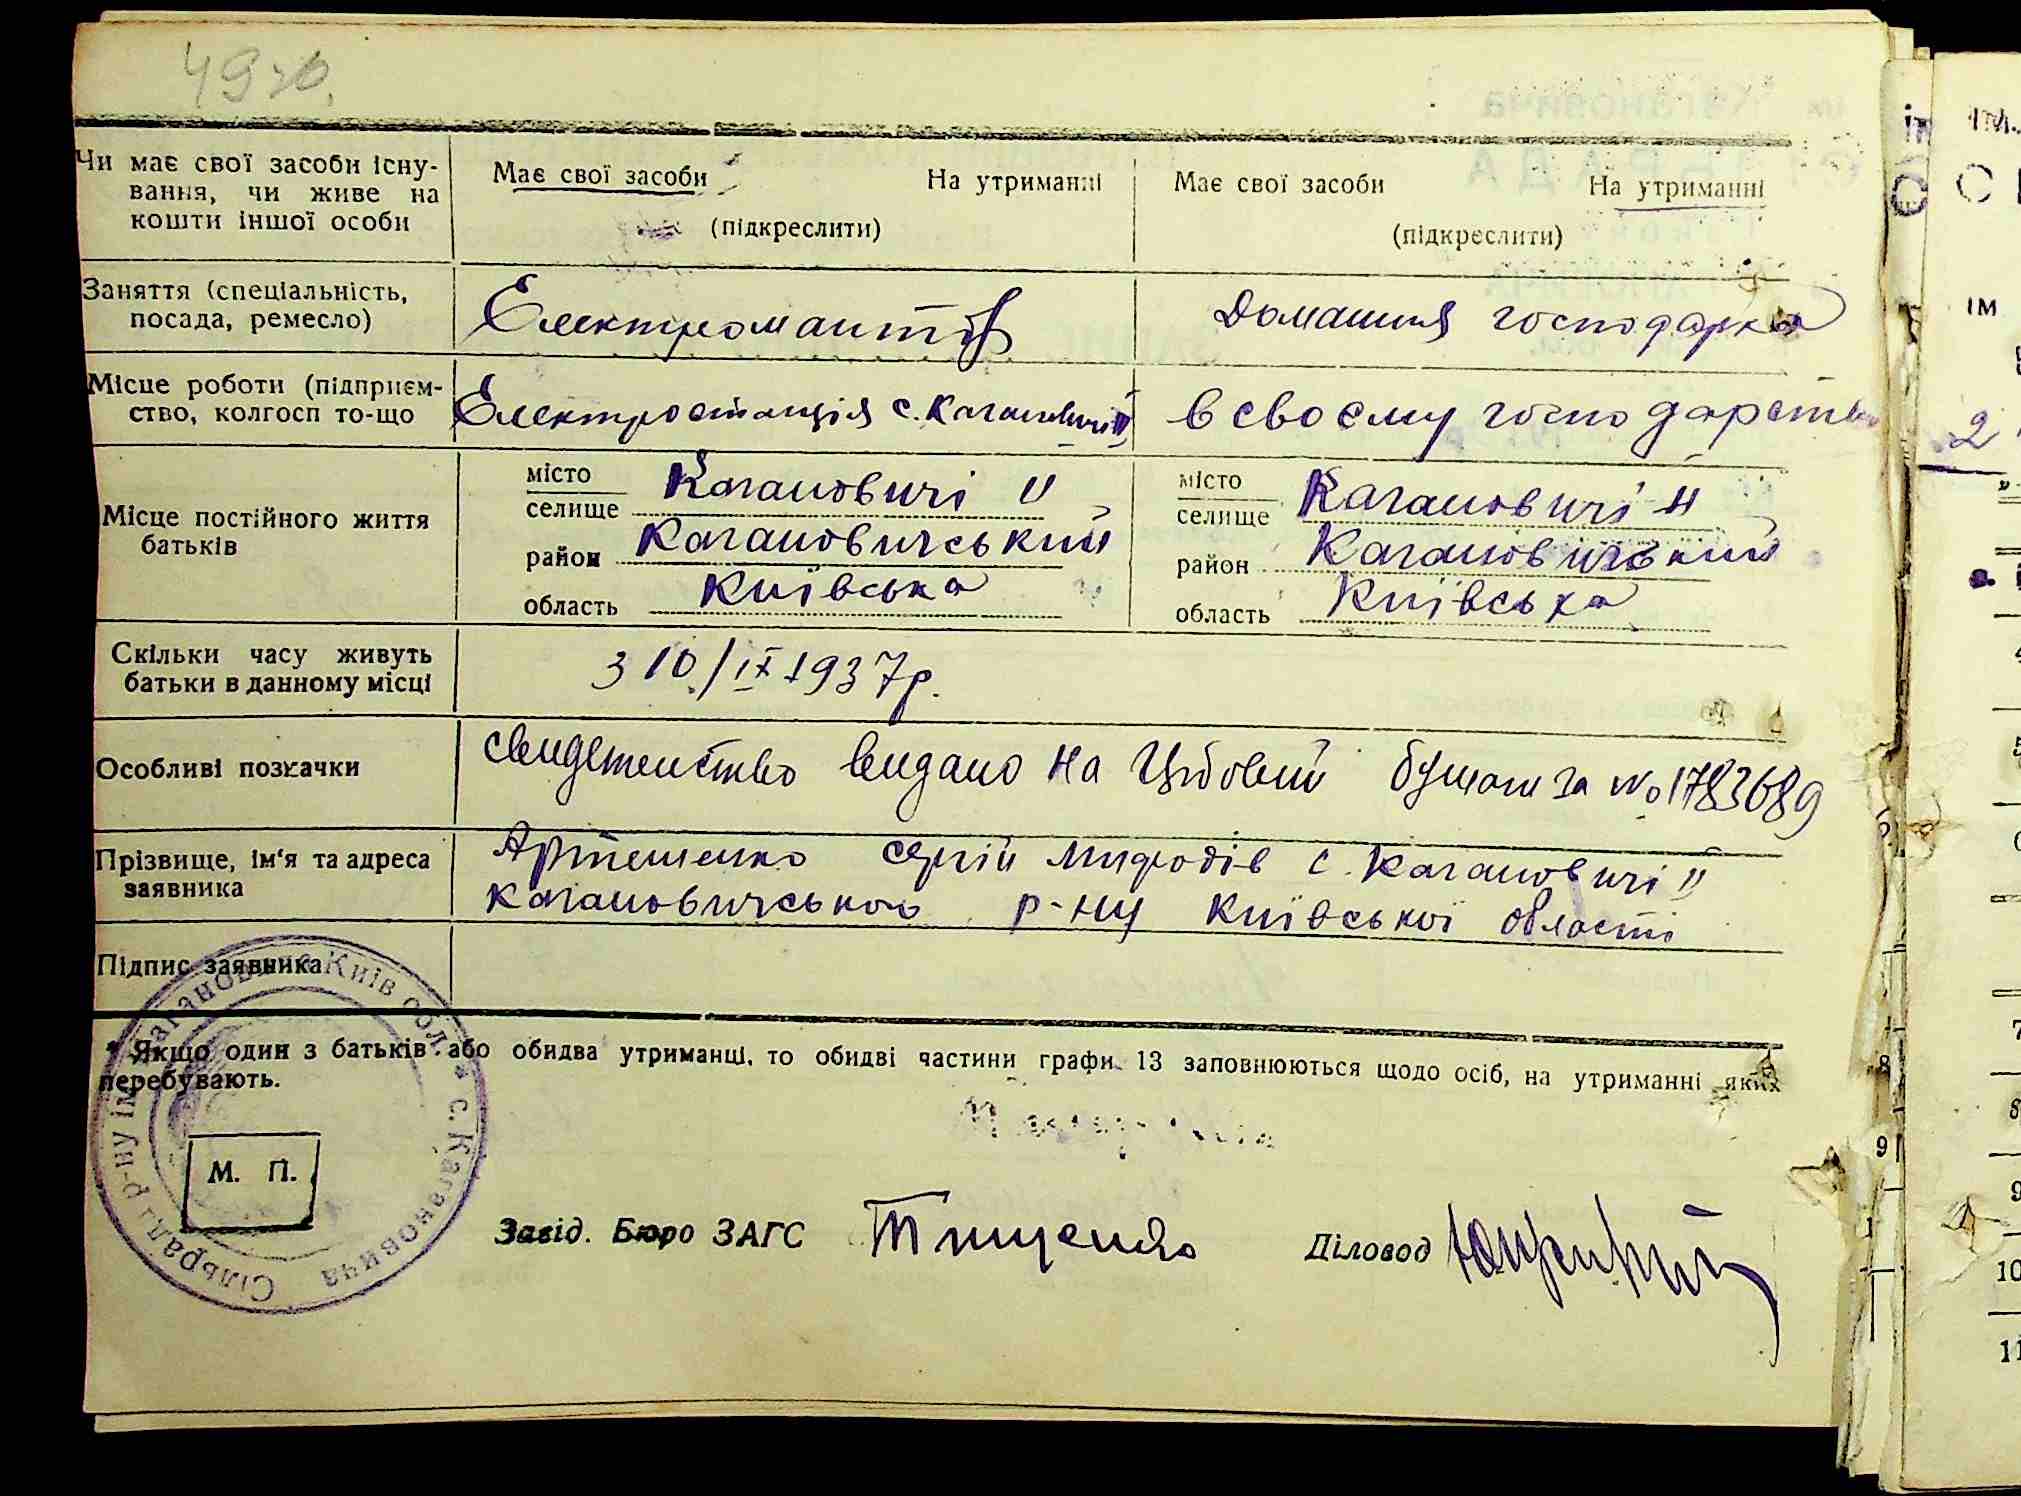 Чи має свої засоби існу-
вання, чи живе на
кошти іншої особи
Має свої засоби На утриманні
(підкреслити)
Має свої засоби На утриманні
(підкреслити)
Заняття (спеціальність,
посада, ремесло)
Електромонтьор
Домашня господарка
Місце роботи (підприєм-
ство, колгосп то-що
Електростанція с. Кагановичі II
в своєму господарстві
Місце постійного життя
батьків
місто
селище
Кагановичі II
район Кагановичський
область Київська
місто
селище
Кагановичі II
район Кагановичський
область Київська
Скільки часу живуть
батьки в данному місці
з 10/IX 1937 р.
Особливі позначки
свидетельство видано на гербовий бумаги за № 1783689
Прізвище, ім'я та адреса
заявника
Артеменко Сергій Мифодів с. Кагановичі II
Кагановичського р-ну Київської області
Підпис заявника
* Якщо один з батьків або обидва утриманці, то обидві частини графи 13 заповнюються щодо осіб, на утриманні яких
перебувають.
М. П.
Сільрада с. Кагановича р-ну ім. Кагановича Київ обл.
Завід. Бюро ЗАГС Тищенко
Діловод